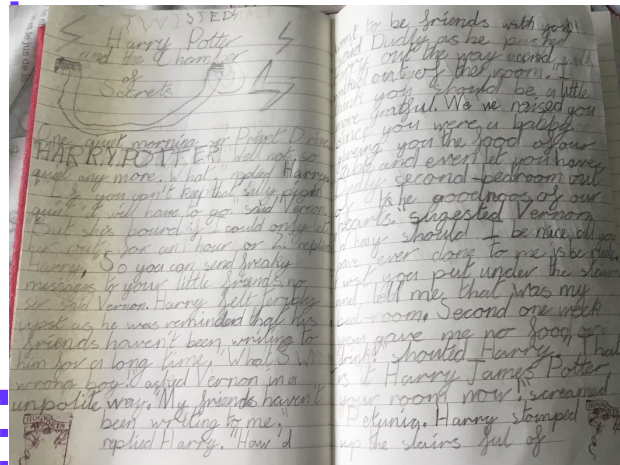 TWISTED
Harry Potter
and the Chamber
of
Secrets
One quiet morning on Privet Drive
"HARRY POTTER!" Well not so
quiet any more. "What" replied Harry.
"If you can't keep that silly pigeon
quiet it will have to go" said Vernon.
"But she's bound if I could only let
her out for an hour or 2" replied
Harry, "So you can send freaky
messages to your little friends no
sir said Vernon. Harry felt terribly
upset as he was reminded that his
friends haven't been writing to
him for a long time, "What's
wrong boy" asked Vernon in a
unpolite way. "My friends haven't
been writing to me,"
replied Harry. "How'd
want to be friends with you"
said Dudly as he pushed
Harry out the way and
out of the room. "I
think you should be a little
more gratful. We we raised you
since you were a babby
giving you the food of our
table and even let you have
Dudly second-bedroom out
of the goodngas of our
hearts." sugested Vernon
Whay should I be nice all you
have ever done to me is be rude.
First you put under the stairs
and tell me that was my
bed-room. Second one week
you gave me no food or
drink" shouted Harry. "That
is it Harry James Potter
your room now!" screamed
Petunia. Harry stomped
up the stairs ful of